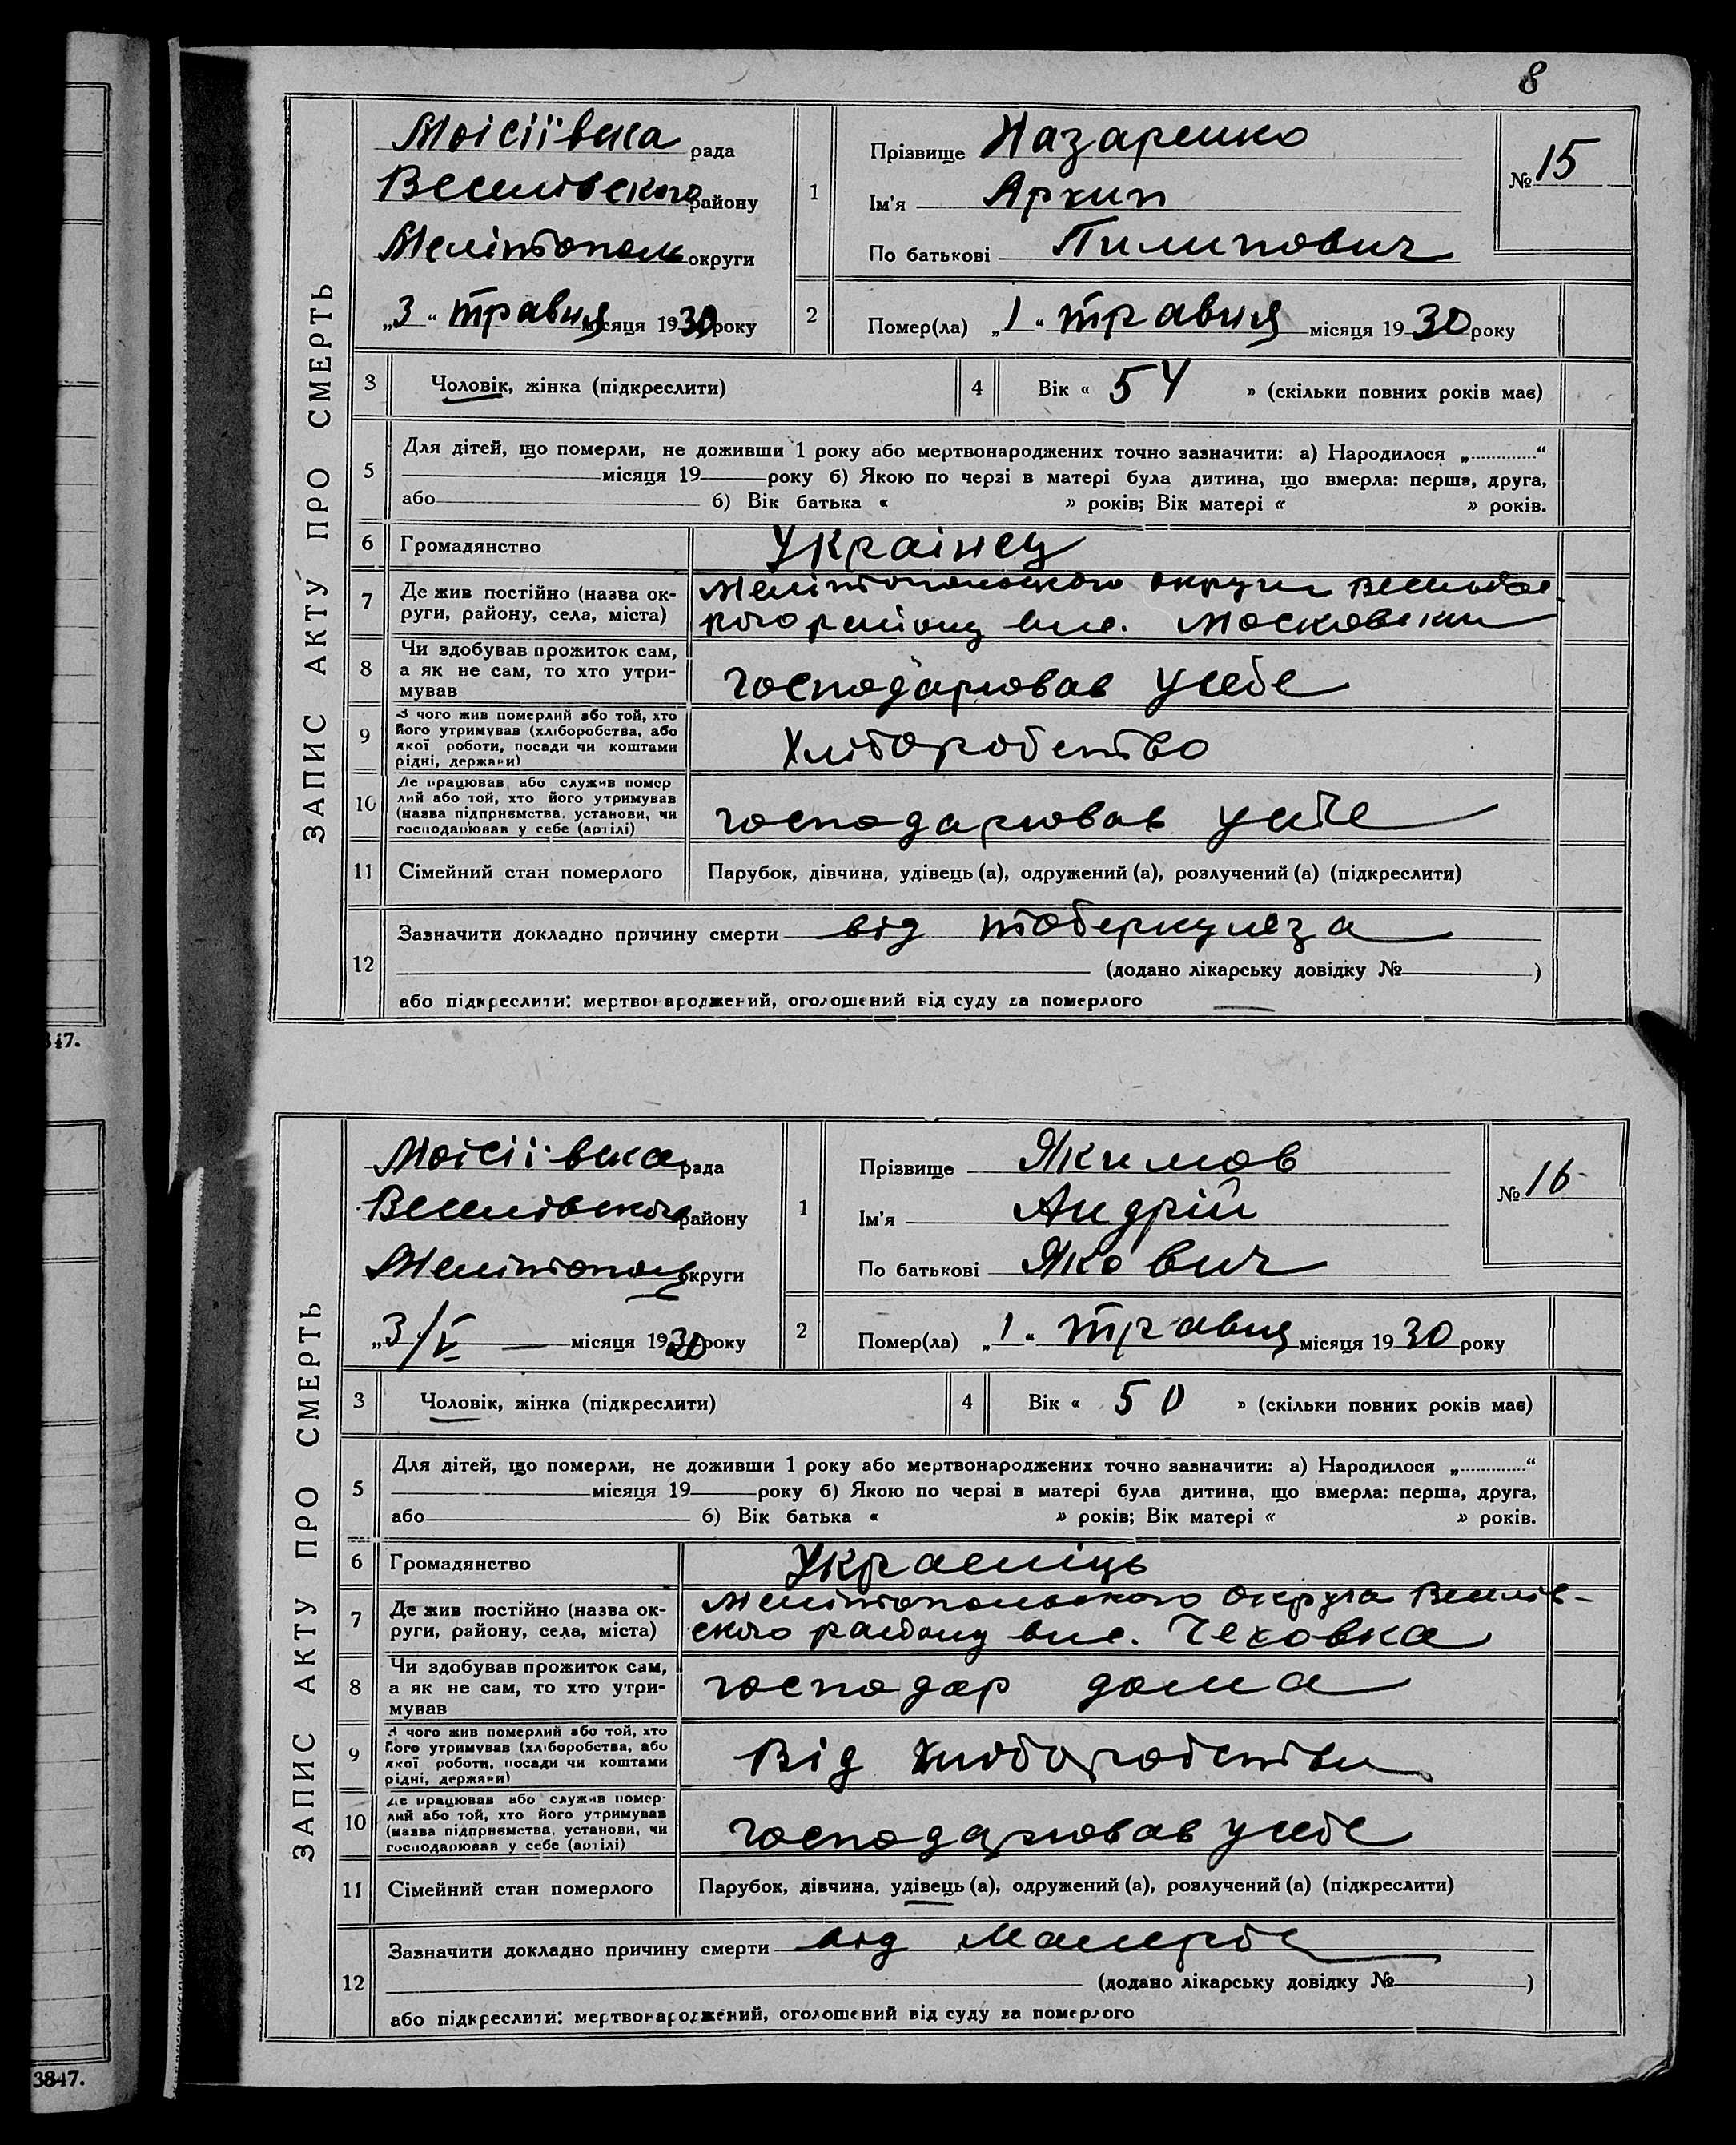 8
ЗАПИС АКТУ ПРО СМЕРТЬ
Моісіївска рада
Веселівского району
Мелітополь округи
„3“ травня місяця 1930 року
1
Прізвище Назаренко
Ім'я Архип
По батькові Пилипович
№ 15
2
Помер(ла) „1“ травня місяця 1930 року
3 Чоловік, жінка (підкреслити)
4 Вік « 54 » (скільки повних років має)
5
Для дітей, що померли, не доживши 1 року або мертвонароджених точно зазначити: а) Народилося „............“
місяця 19 року б) Якою по черзі в матері була дитина, що вмерла: перша, друга,
або б) Вік батька « » років; Вік матері « » років.
6 Громадянство Украінец
7 Де жив постійно (назва ок-
руги, району, села, міста)
Мелітопольского округи
району вис. Московски
8 Чи здобував прожиток сам,
а як не сам, то хто утри-
мував
господарював усебе
9 З чого жив померлий або той, хто
його утримував (хліборобства, або
якої роботи, посади чи коштами
рідні, держави)
Хліборобство
10 Де працював або служив помер
лий або той, хто його утримував
(назва підприємства, установи, чи
господарював у себе (артілі)
господарював усебе
11 Сімейний стан померлого Парубок, дівчина, удівець (а), одружений (а), розлучений (а) (підкреслити)
12
Зазначити докладно причину смерти від тоберкульза
(додано лікарську довідку № )
або підкреслити: мертвонароджений, оголошений від суду за померлого
347.
ЗАПИС АКТУ ПРО СМЕРТЬ
Моісіївска рада
Веселівского району
Мелітополь округи
„3/V місяця 1930 року
1
Прізвище Якимов
Ім'я Андрій
По батькові Якович
№ 16
2
Помер(ла) „1“ травня місяця 1930 року
3 Чоловік, жінка (підкреслити)
4 Вік « 50 » (скільки повних років має)
5
Для дітей, що померли, не доживши 1 року або мертвонароджених точно зазначити: а) Народилося „............“
місяця 19 року б) Якою по черзі в матері була дитина, що вмерла: перша, друга,
або б) Вік батька « » років; Вік матері « » років.
6 Громадянство
7 Де жив постійно (назва ок-
руги, району, села, міста)
Мелітопольского Округа Веселів-
ского району вис. Чеховка
8 Чи здобував прожиток сам,
а як не сам, то хто утри-
мував
господар дома
9 З чого жив померлий або той, хто
його утримував (хліборобства, або
якої роботи, посади чи коштами
рідні, держави)
Від хліборобства
10 Де працював або служив помер-
лий або той, хто його утримував
(назва підприємства, установи, чи
господарював у себе (артілі)
господарював усебе
11 Сімейний стан померлого Парубок, дівчина, удівець (а), одружений (а), розлучений (а) (підкреслити)
12
Зазначити докладно причину смерти від
(додано лікарську довідку № )
або підкреслити: мертвонароджений, оголошений від суду за померлого
3847.